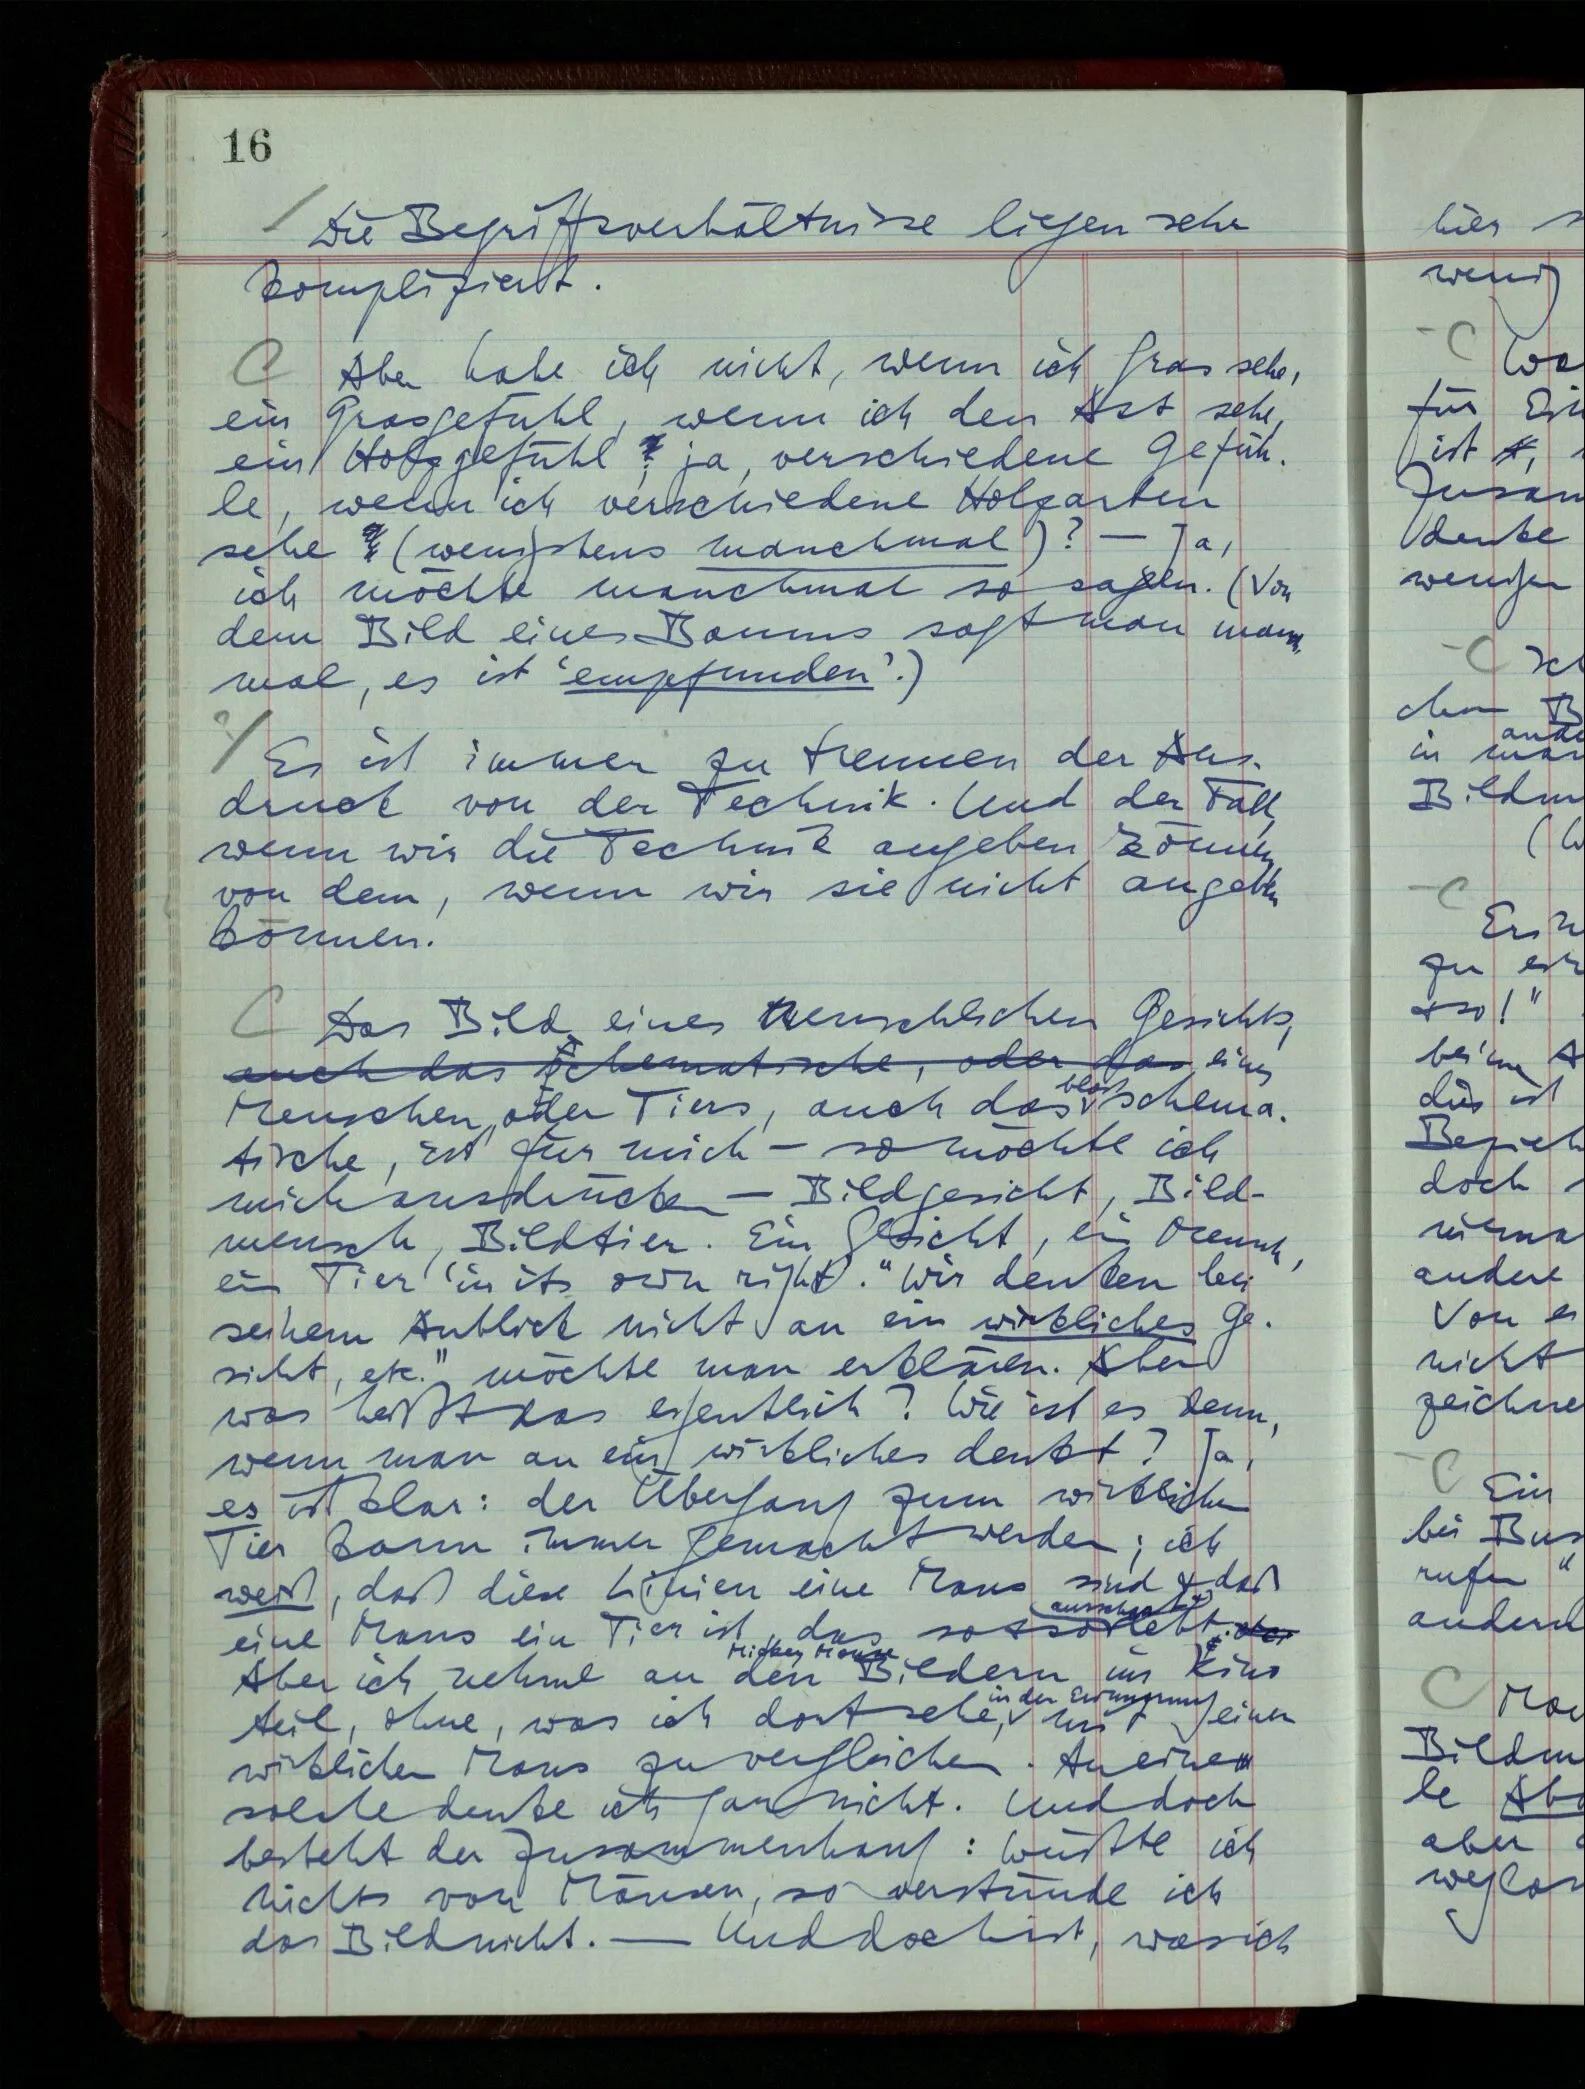 16
Die Begriffsverhältnisse liegen sehr
kompliziert.
C Aber habe ich nicht, wenn ich Gras sehe,
ein Grasgefühl, wenn ich den Ast sehe,
ein Holzgefühl; ja, verschiedene Gefüh-
le, wenn ich verschiedene Holzarten
sehe (wenigstens manchmal)? — Ja,
ich möchte manchmal so sagen. (Von
dem Bild eines Baums sagt man manch-
mal, es ist 'empfunden'.)
Es ist immer zu trennen der Aus-
druck von der Technik. Und der Fall,
wenn wir die Technik angeben können
von dem, wenn wir sie nicht angeben
können.
C Das Bild eines menschlichen Gesichts,
auch das schematische, oder das eines
bloß
Menschen, oder Tiers, auch das schema-
tische, ist für mich – so möchte ich
mich ausdrücken — Bildgesicht, Bild-
mensch, Bildtier. Ein Gesicht, ein Mensch,
ein Tier 'in its own right'. "Wir denken bei
seinem Anblick nicht an ein wirkliches Ge-
sicht, etc." möchte man erklären. Aber
was heißt das eigentlich? Wie ist es denn,
wenn man an ein wirkliches denkt? Ja,
es ist klar: der Übergang zum wirklichen
Tier kann immer gemacht werden; ich
weiß, daß diese Linien eine Maus sind & daß
eine Maus ein Tier ist, das so & so lebt.
Mickey Mouse
Aber ich nehme an den Bildern im Kino
in der Erinnerung
teil, ohne, was ich dort sehe, mit einer
wirklichen Maus zu vergleichen. An eine
solche denke ich gar nicht. Und doch
besteht der Zusammenhang: Wüßte ich
nichts von Mäusen, so verstünde ich
das Bild nicht. — Und doch ist, was ich
hier
wenig
C
für
ist
denke
weniger
C
in
(
C
zu
so!"
beim
dies ist
doch
andere
Von
nicht
C
Ein
bei
rufen "
C
le
aber